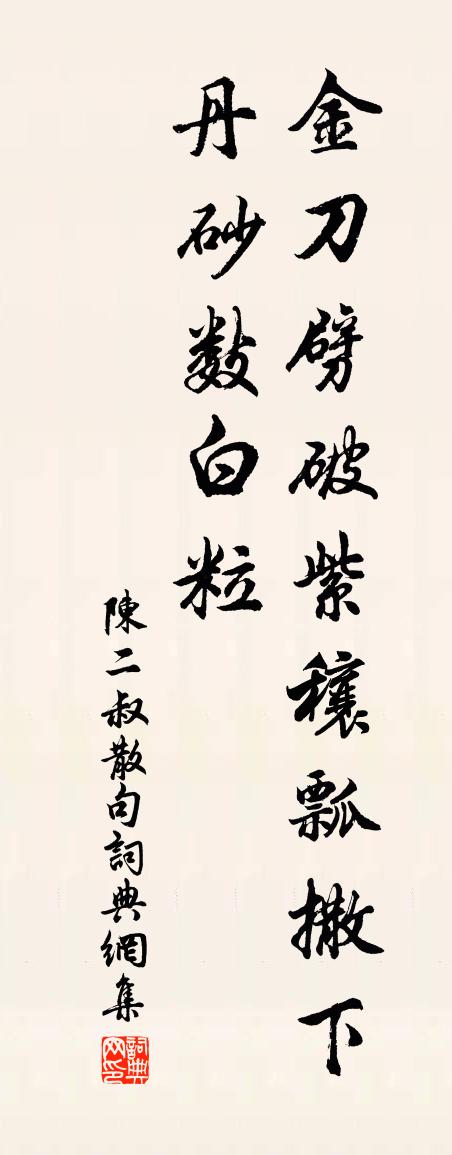 金刀劈破紫穰瓢撒下
丹砂數白粒
陳二叔散句詞典網集
詞典网印